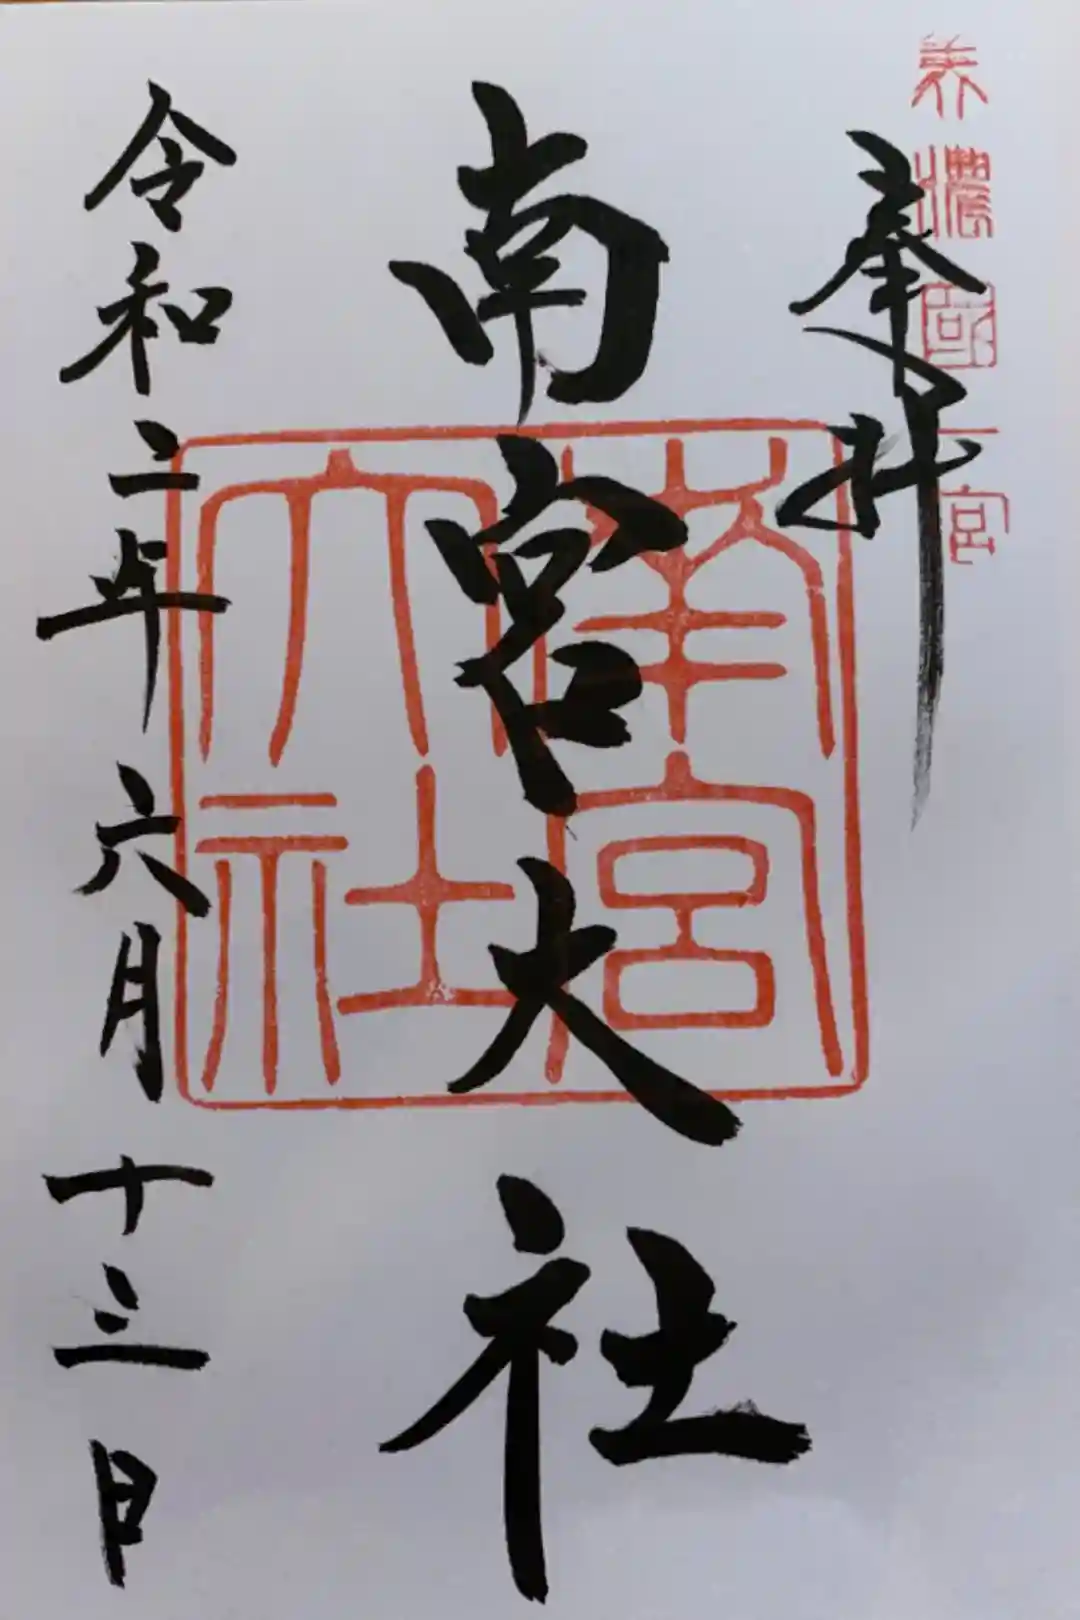 美濃國一宮
奉拝
南宮大社
南宮大社
令和二年六月十三日